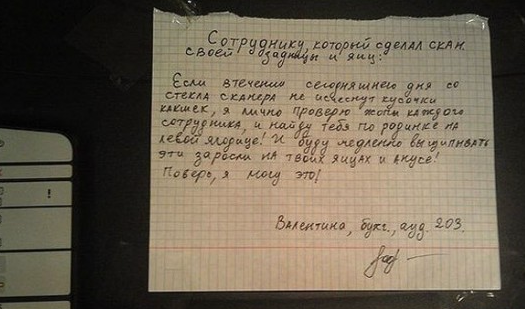 Сотруднику, который сделал скан
своей задницы и яиц:
Если втечении сегодняшнего дня со
стекла сканера не исчезнут кусочки
какшек, я лично проверю жопы каждого
сотрудника, и найду тебя по родинке на
левой ягодице! И буду медленно выщипывать
эти заросли на твоих яйцах и анусе!
Поверь, я могу это!
Валентина, бухг., ауд. 203.